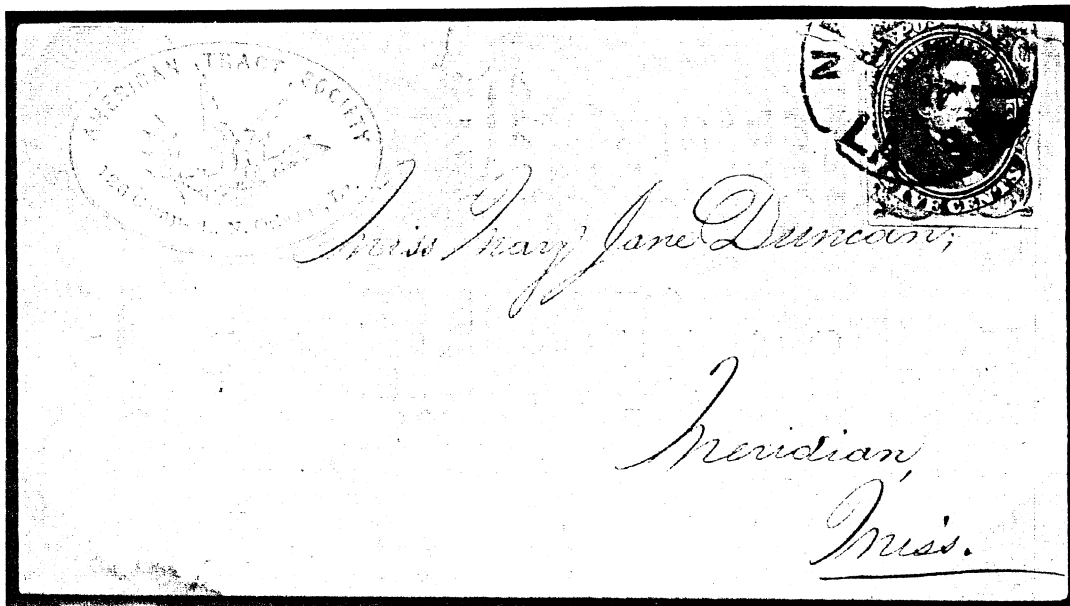 AMERICAN TRACT SOCIETY
N
LA
FIVE CENTS
Miss Mary Jane Duncan,
Meridian,
Miss.